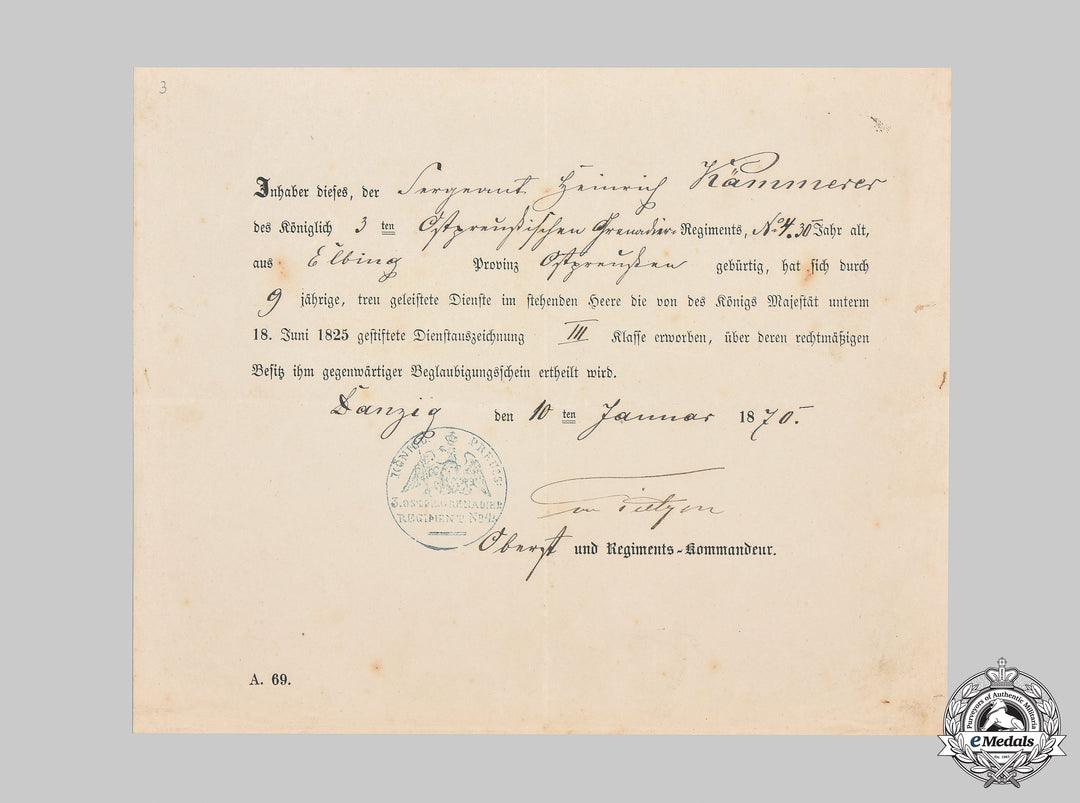 3
Inhaber dieses, der Sergeant Heinrich Kämmerer
des Königlich 3 ten Ostpreußischen Grenadier-Regiments, No 4. 30 Jahr alt,
aus Elbing Provinz Ostpreußen gebürtig, hat sich durch
9 jährige, treu geleistete Dienste im stehenden Heere die von des Königs Majestät unterm
18. Juni 1825 gestiftete Dienstauszeichnung III Klasse erworben, über deren rechtmäßigen
Besitz ihm gegenwärtiger Beglaubigungsschein ertheilt wird.
Danzig den 10 ten Januar 1870.
KÖNIGL. PREUSS.
3. OSTPR. GRENADIER
REGIMENT No 4.
von Tietzen
Oberst und Regiments-Kommandeur.
A. 69.
Purveyors of Authentic Militaria
eMedals